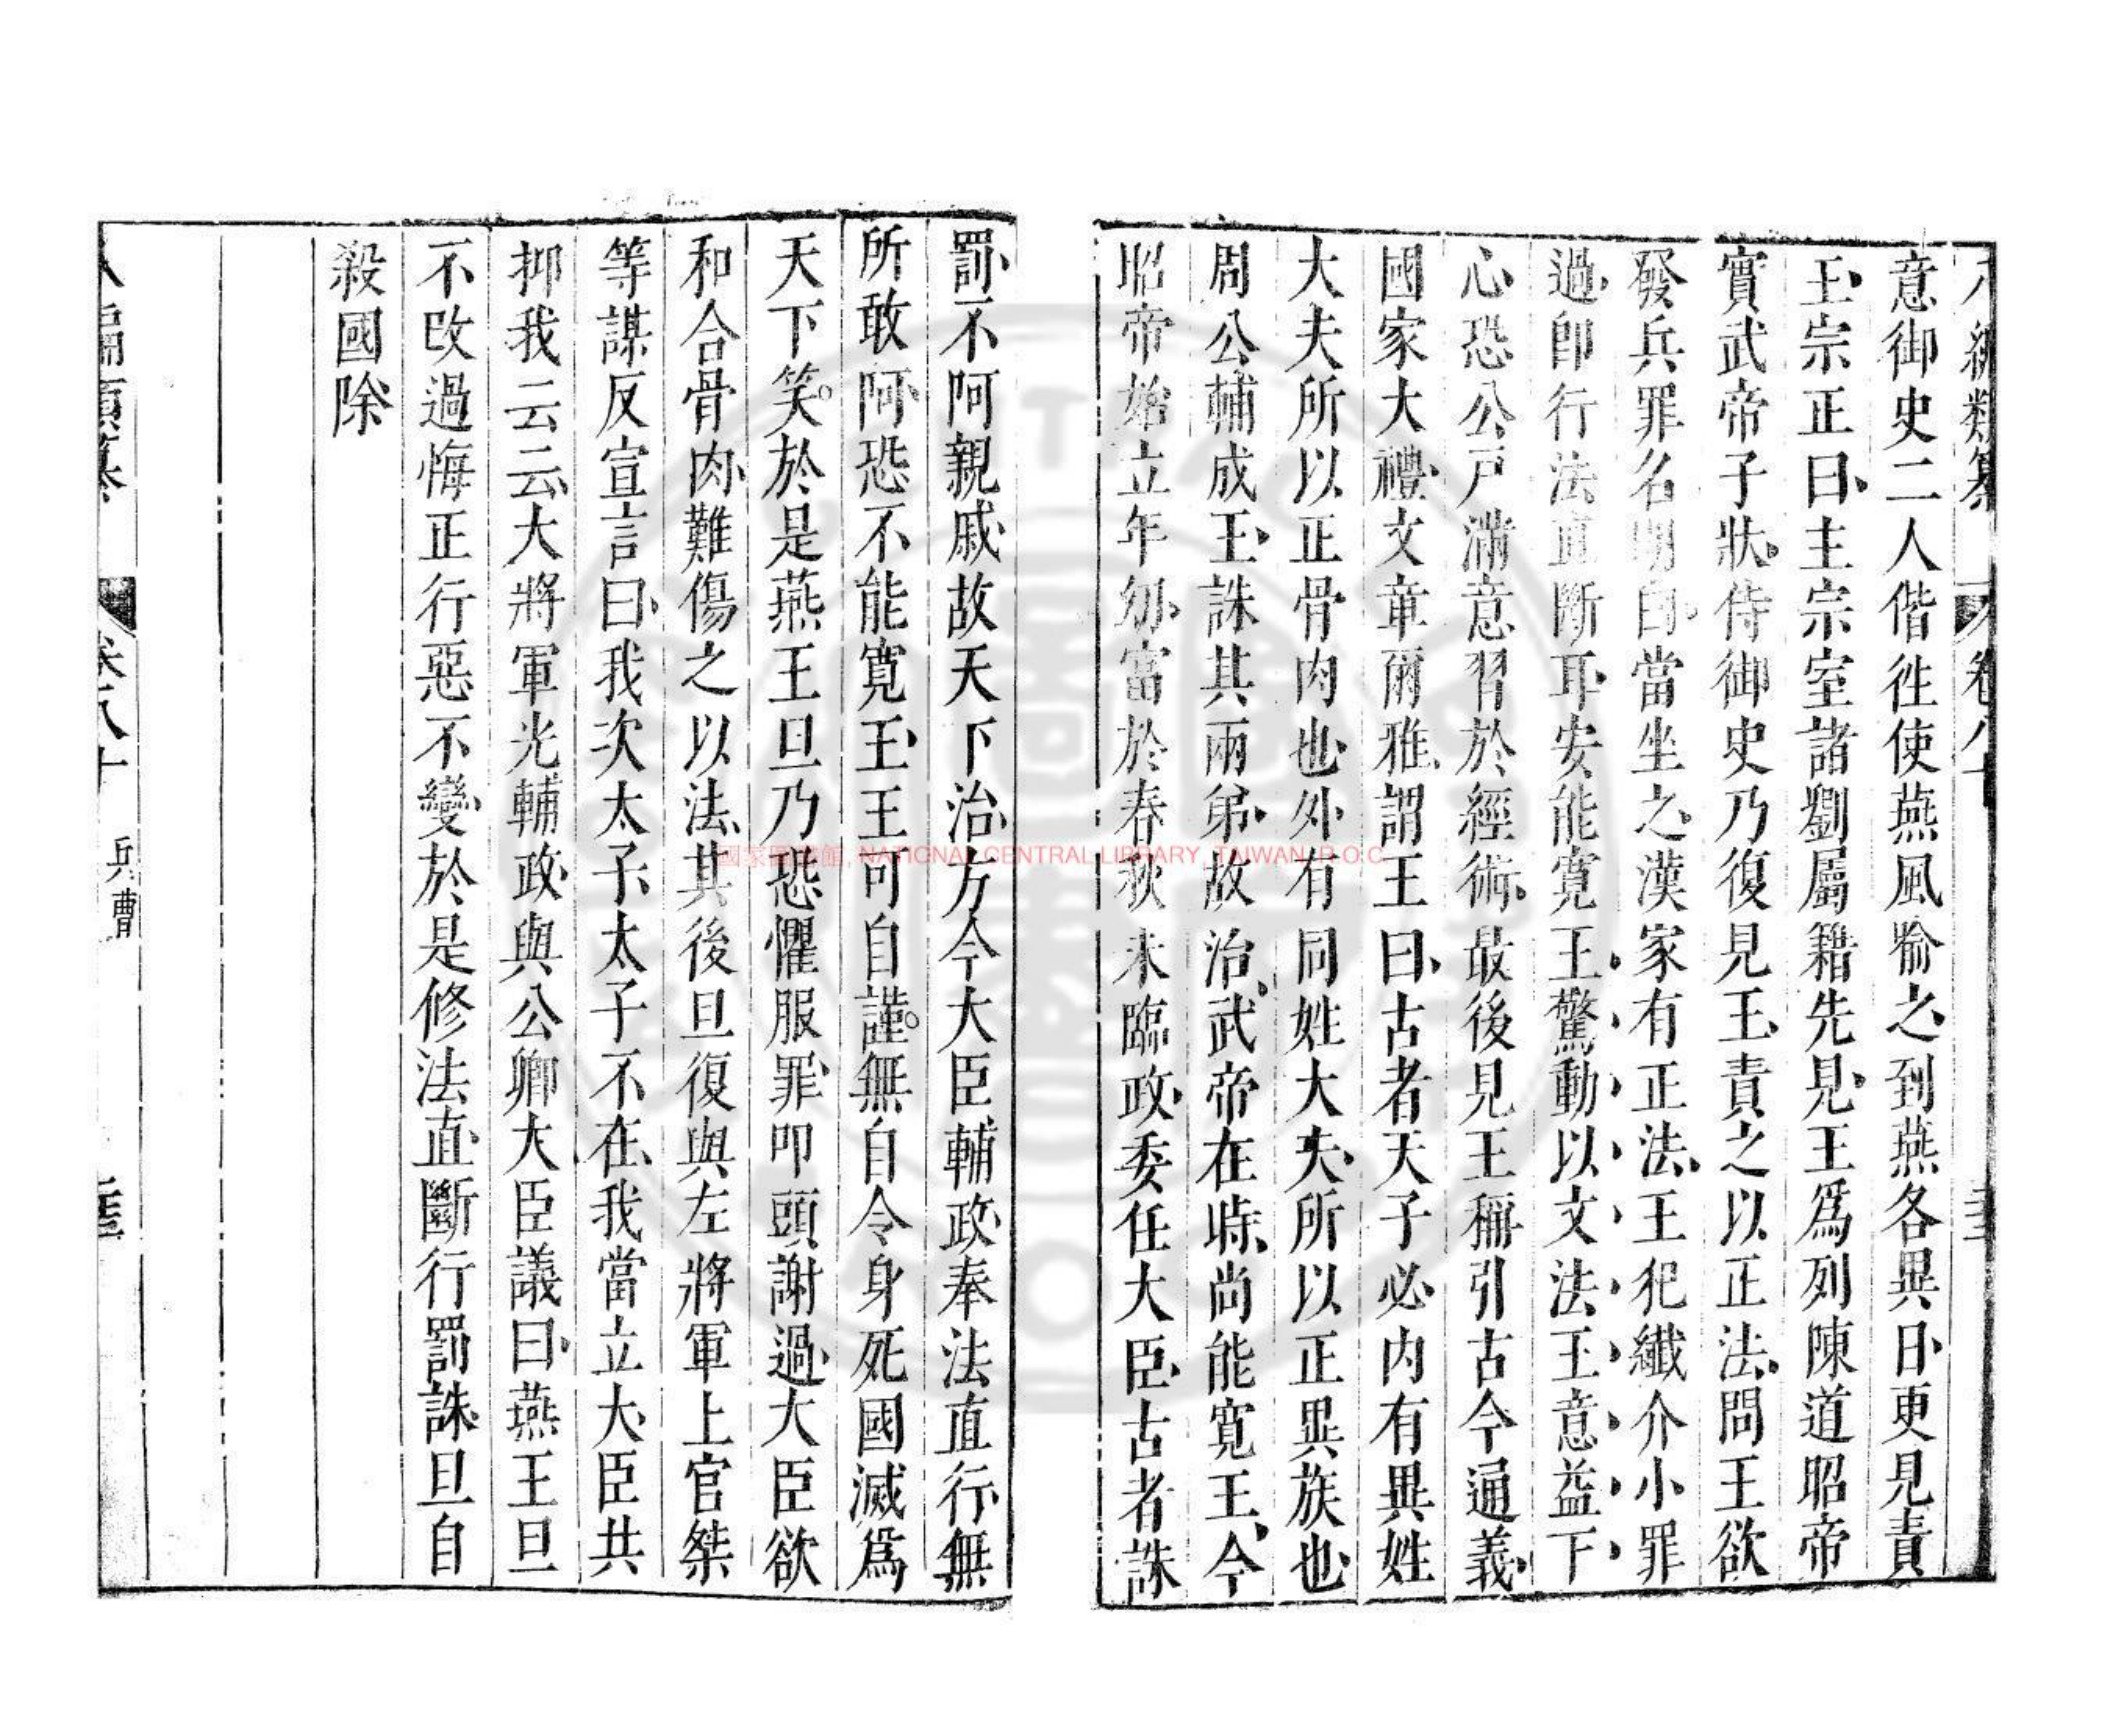 意御史二人偕徃使燕風喻之到燕各異日更見責
王宗正曰主宗室諸劉屬籍先見王爲列陳道昭帝
實武帝子狀侍御史乃復見王責之以正法問王欲
發兵罪名明白當坐之漢家有正法王犯纖介小罪
過卽行法直斷耳安能寛王驚動以文法王意益下
心恐公戸滿意習於經術最後見王稱引古今通義
國家大禮文章爾雅謂王曰古者天子必內有異姓
大夫所以正骨肉也外有同姓大夫所以正異族也
周公輔成王誅其兩弟故治武帝在時尚能寛王今
昭帝始立年幼富於春秋未臨政委任大臣古者誅
罰不阿親戚故天下治方今大臣輔政奉法直行無
所敢阿恐不能寛王王可自謹無自令身死國滅爲
天下笑於是燕王旦乃恐懼服罪叩頭謝過大臣欲
和合骨肉難傷之以法其後旦復與左將軍上官桀
等謀反宣言曰我次太子太子不在我當立大臣共
抑我云云大將軍光輔政與公卿大臣議曰燕王旦
不改過悔正行惡不變於是修法直斷行罰誅旦自
殺國除
編類纂 卷八十 兵曹
國家圖書館, NATIONAL CENTRAL LIBRARY, TAIWAN, R.O.C.